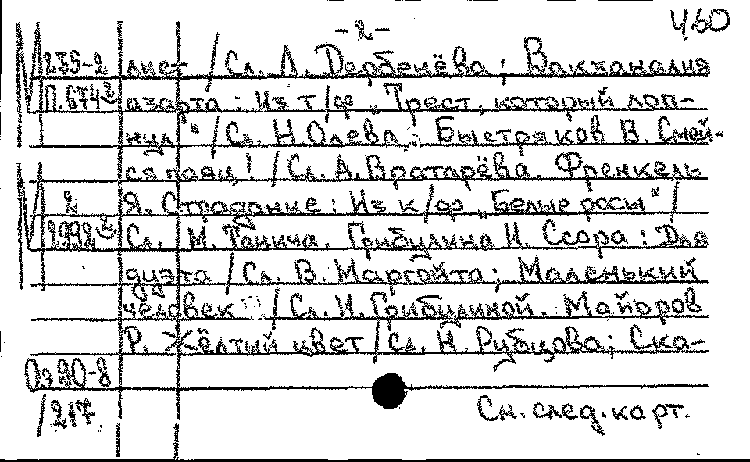 -2-
460
235-2 лист / Сл. Л. Дербенёва; Вакханалия
П.6742 азарта: Из т/ф „Трест, который лоп-
нул“ / Сл. Н. Олева,; Быстряков В. Смей-
ся паяц! / Сл. А. Вратарёва. Френкель
2 Я. Страдание: Из к/ф „Белые росы“ /
3992 Сл. М. Танича. Грибулина И. Ссора: Для
дуэта / Сл. В. Маргойта; Маленький
человек / Сл. И. Грибулиной. Майоров
Р. Жёлтый цвет / Сл. Н. Рубцова; Ска-
Оэ 20-8
/217.
См. след. карт.